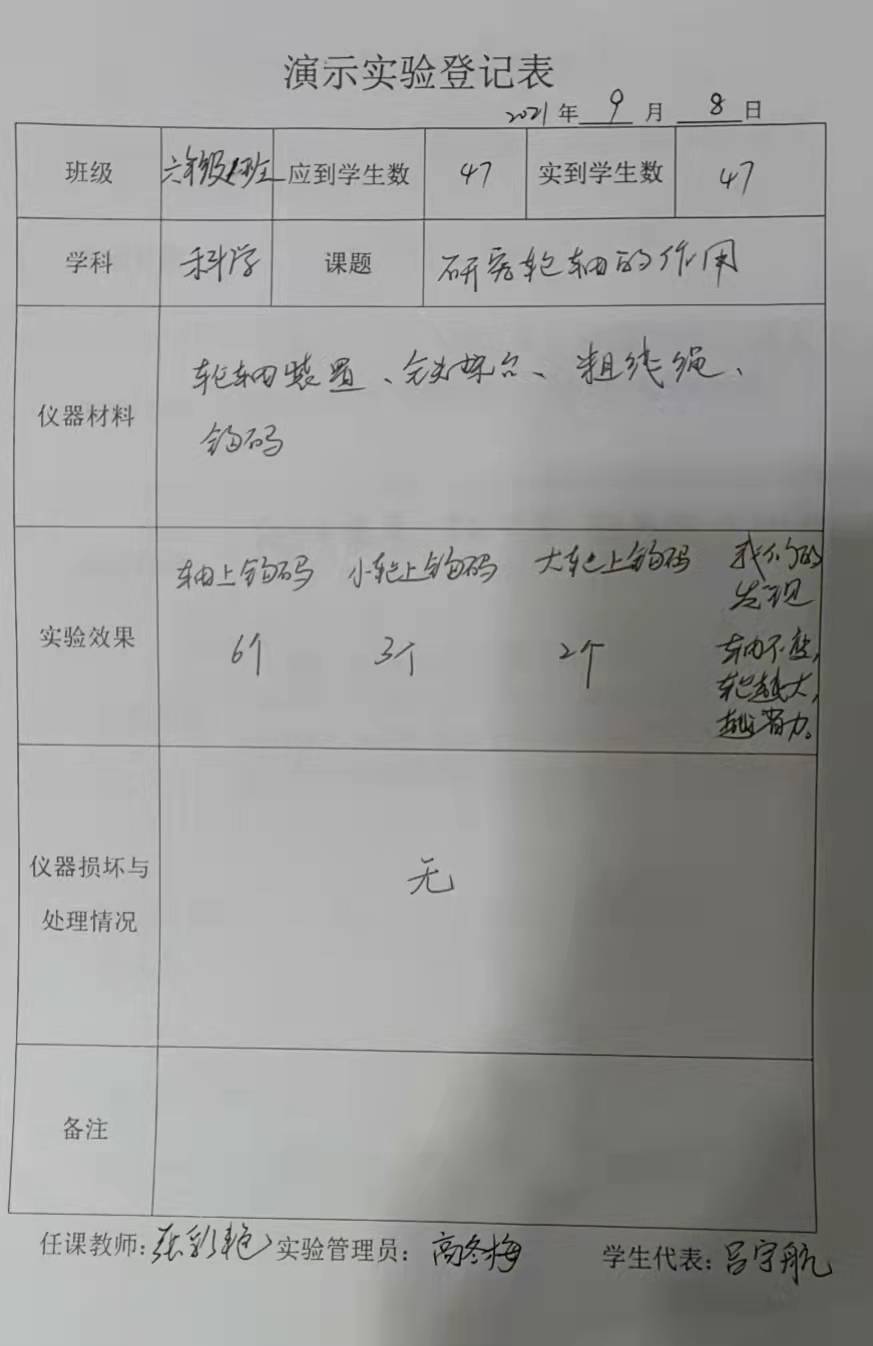 演示实验登记表
2021年 9 月 8 日
班级 六年级1班 应到学生数 47 实到学生数 47
学科 科学 课题 研究轮轴的作用
仪器材料 轮轴装置、铁架台、粗线绳、
钩码
实验效果 轴上钩码 小轮上钩码 大轮上钩码 我们的
发现
6个 3个 2个 轴不变,
轮越大,
越省力。
仪器损坏与
处理情况
无
备注
任课教师: 张彩艳 实验管理员: 高冬梅 学生代表: 吕宇航